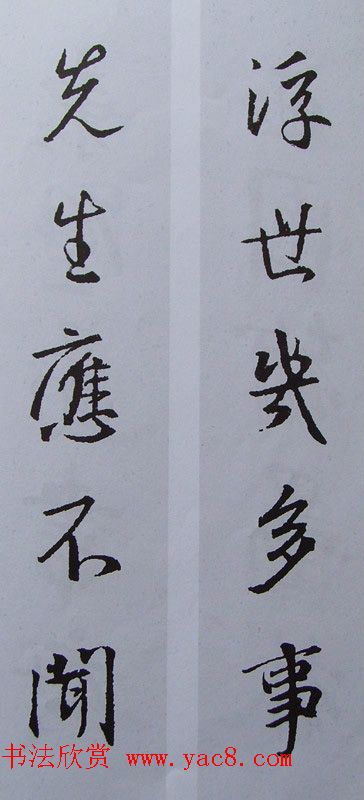 浮世幾多事
先生應不聞
书法欣赏 www.yac8.com